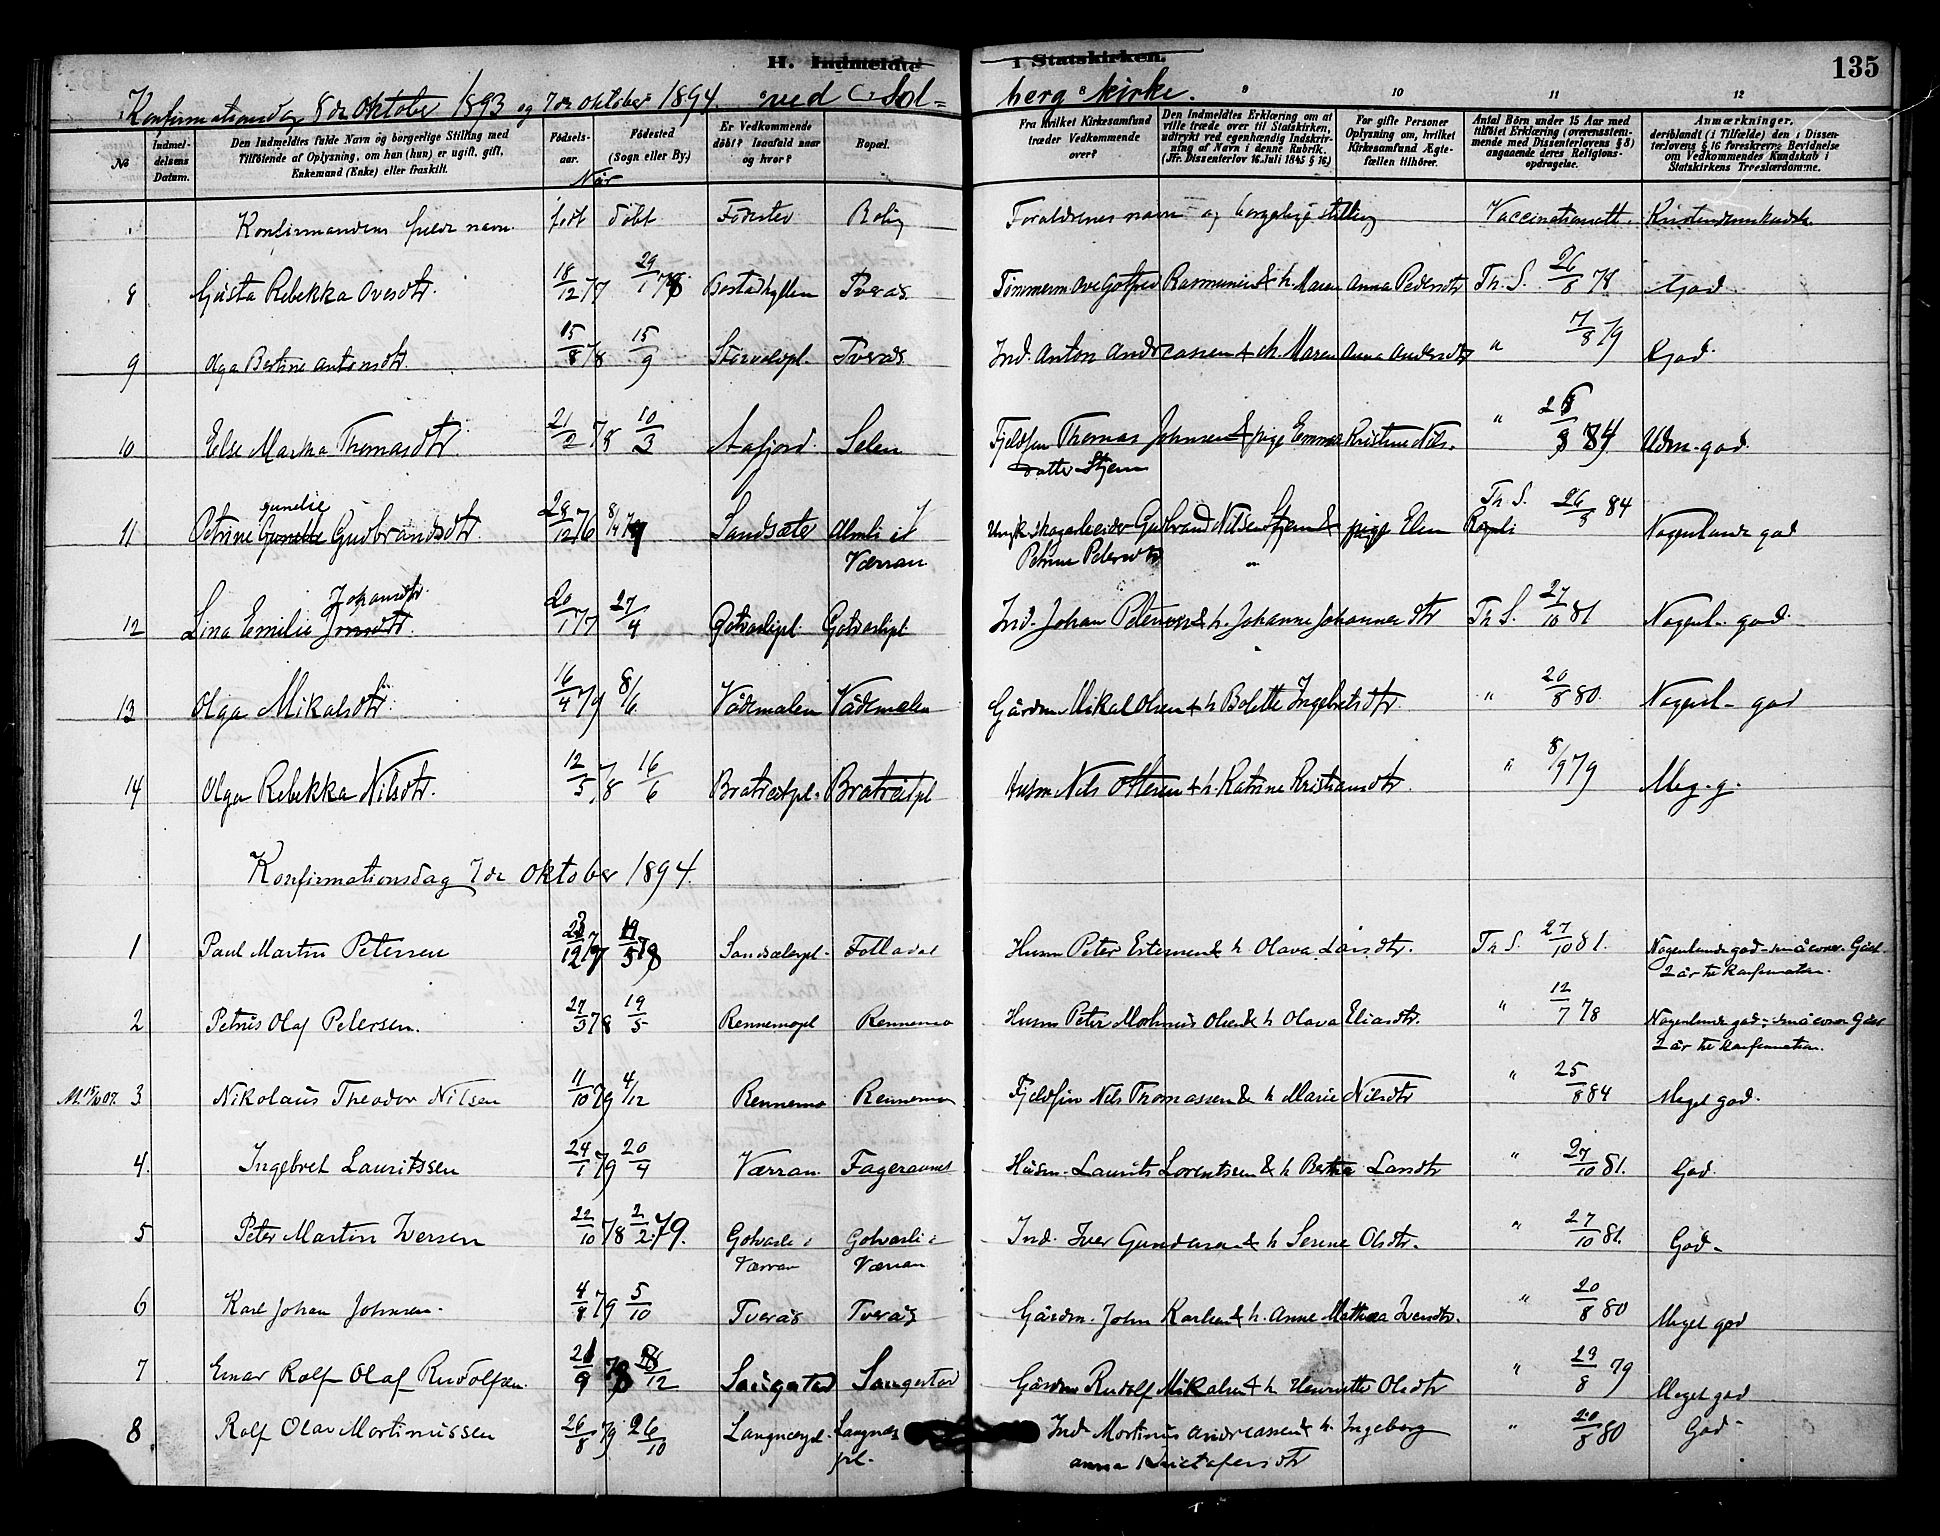 H. Indmeldte i Statskirken. 135
Konfirmationsdag 8de Oktober 1893 og 7de oktober 1894. ved Solberg kirke.
9 10 11 12
No
Indmel-delsens Datum.
Den Indmeldtes fulde Navn og borgerlige Stilling med Tilføiende af Oplysning, om han (hun) er ugift, gift, Enkemand (Enke) eller fraskilt.
Fødsels-aar.
Fødested (Sogn eller By.)
Er Vedkommende døbt? Isaafald naar og hvor?
Bopæl.
Fra hvilket Kirkesamfund træder Vedkommende over?
Den Indmeldtes Erklæring om at ville træde over til Statskirken, udtrykt ved egenhændig Indskrivning af Navn i denne Rubrik. (Jfr. Dissenterlov 16. Juli 1845 § 16.)
For gifte Personer Oplysning om, hvilket Kirkesamfund Ægtefællen tilhører.
Antal Børn under 15 Aar med tilføiet Erklæring (overensstemmende med Dissenterlovens § 8) angaaende deres Religionsopdragelse.
Anmærkninger, deriblandt (i Tilfælde) den i Dissenterlovens § 16 foreskrevne Bevidnelse om Vedkommendes Kundskab i Statskirkens Troeslærdomme.
Når
Konfirmandens fulde navn. født døbt Fødested Bolig Forældrenes navn og borgerlige stilling Vaccinationatt. Kristendomskundsk.
8 Gusta Rebekka Ovesdtr. 18/12 77 29/1 78 Tverås Tømmerm. Ove Gotfred Rasmussen & h. Maren Anna Pedersdtr Th. S. 26/8 78 God.
9 Olga Bertine Antonsdtr. 15/8 78 15/9 Tverås Ind. Anton Andreassen & h. Maren Anna Andersdtr " 7/8 79 God.
10 Else Marka Thomasdtr. 21/2 78 10/3 Aafjord. Selen Fjeldfin Thomas Johnsen & pige Emma Kristine Nils-
datter Stjern " 84 Udm. god.
11 Petrine Gunelie Gudbrandsdtr. 28/12 76 8/4 77 Sandsæter Almli i Værran Ungk. skogarbeider Gudbrand Nilsen Stjern & pige Elen
Petrine Petersdtr Th. S. 84 Nogenlunde god
12 Lina Emilie Johansdtr. 20/1 77 27/4 Golvaslipl. Golvaslipl Ind. Johan Petersen & h. Johanne Johannesdtr Th S. 27/10 81 Nogenl. god.
13 Olga Mikalsdtr. 16/4 79 8/6 Vådemalen Vådemalen Gårdm. Mikal Olsen & h. Bolette Ingebretsdtr. " 20/8 80. Nogenl. god
14 Olga Rebekka Nilsdtr. 12/5 78 16/6 Bratreitpl. Bratreitpl Husm Nils Ottesen & h. Katrine Kristiansdtr. " 8/9 79 Meg. g.
Konfirmationsdag 7de oktober 1894.
1 Paul Martin Petersen 77 78 Sandsæterpl. Folladal Husm Peter Estensen & h. Olava Larsdtr. Th S. 27/10 81. Nogenlunde god - små evner. Gået
2 år til konfirmation.
2 Petrus Olaf Petersen. 27/3 78 19/5 Rennemopl Rennemo Husm Peter Mortinus Olsen & h Olava Eliasdtr. " 12/7 78 Nogenlunde god - små evner Gået
2 år til konfirmation.
3 Nikolaus Theodor Nilsen 11/10 79 4/12 Rennemo Rennemo Fjeldfin Nils Thomassen & h Marie Nilsdtr " 25/8 84 Meget god.
4. Ingebret Lauritssen 24/1 79 20/4 Værran. Fagervannet Husm. Laurits Lorentssen & h Bertha Larsdtr " 27/10 81. God.
5 Peter Martin Iversen 22/10 78 2/2 79. Golvasli i
Værran Golvasli i
Værran Ind. Iver Gundersen & h Serine Olsdtr. " 27/10 81. God.
6 Karl Johan Johnsen. 4/8 79 5/10 Tverås Tverås Gårdm. John Karlsen & h. Anne Mathea Iversdtr. " 20/8 80 Meget god
7 Einar Rolf Olaf Rudolfsen. 21/9 78 12 Saugstad Saugstad Gårdm Rudolf Mikalsen & h Henriette Olsdtr " 29/8 79 Meget god
8 Rolf Olav Mortinussen 26/8 79 26/10 Langnespl. Langnes
pl. Ind. Mortinus Andreassen & h. Ingeborg
Anna Kristofersdtr " 20/8 80 God